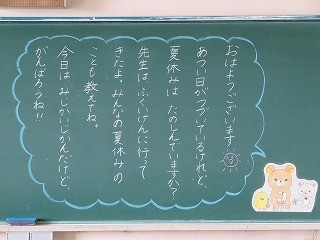 おはようございます
あつい日がつづいているけれど、
夏休みは たのしんでいますか？
先生は、ふくいけんに行って
きたよ。みんなの夏休みの
ことも教えてね。
今日は みじかいじかんだけど、
がんばろうね!!